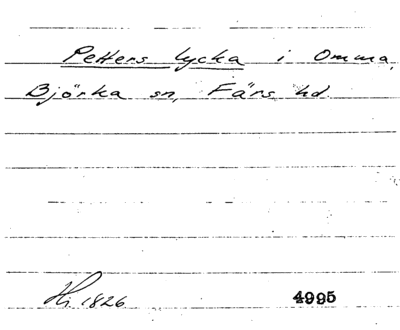 Petters lycka i Omma,
Björka sn, Färs hd.
Hi. 1826 4995